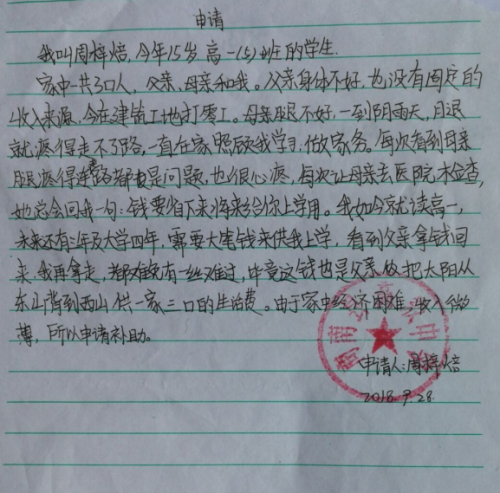 申请
我叫周梓焙,今年15岁高一(5)班的学生.
家中一共3口人,父亲、母亲和我。父亲身体不好,也没有固定的
收入来源,今在建筑工地打零工。母亲腿不好,一到阴雨天,月退
就疼得走不了路,一直在家照顾我学习,做家务。每次看到母亲
腿疼得连走路都是问题,也很心疼,每次让母亲去医院检查,
她总会回我一句:钱要省下来将来给你上学用。我如今就读高一,
未来还有三年及大学四年,需要大笔钱来供我上学,看到父亲拿钱回
来,我再拿走,都难免有一丝难过,毕竟这钱也是父亲做把太阳从
东山背到西山供一家三口的生活费。由于家中经济困难,收入微
薄,所以申请补助。
申请人:周梓焙
2018.9.28